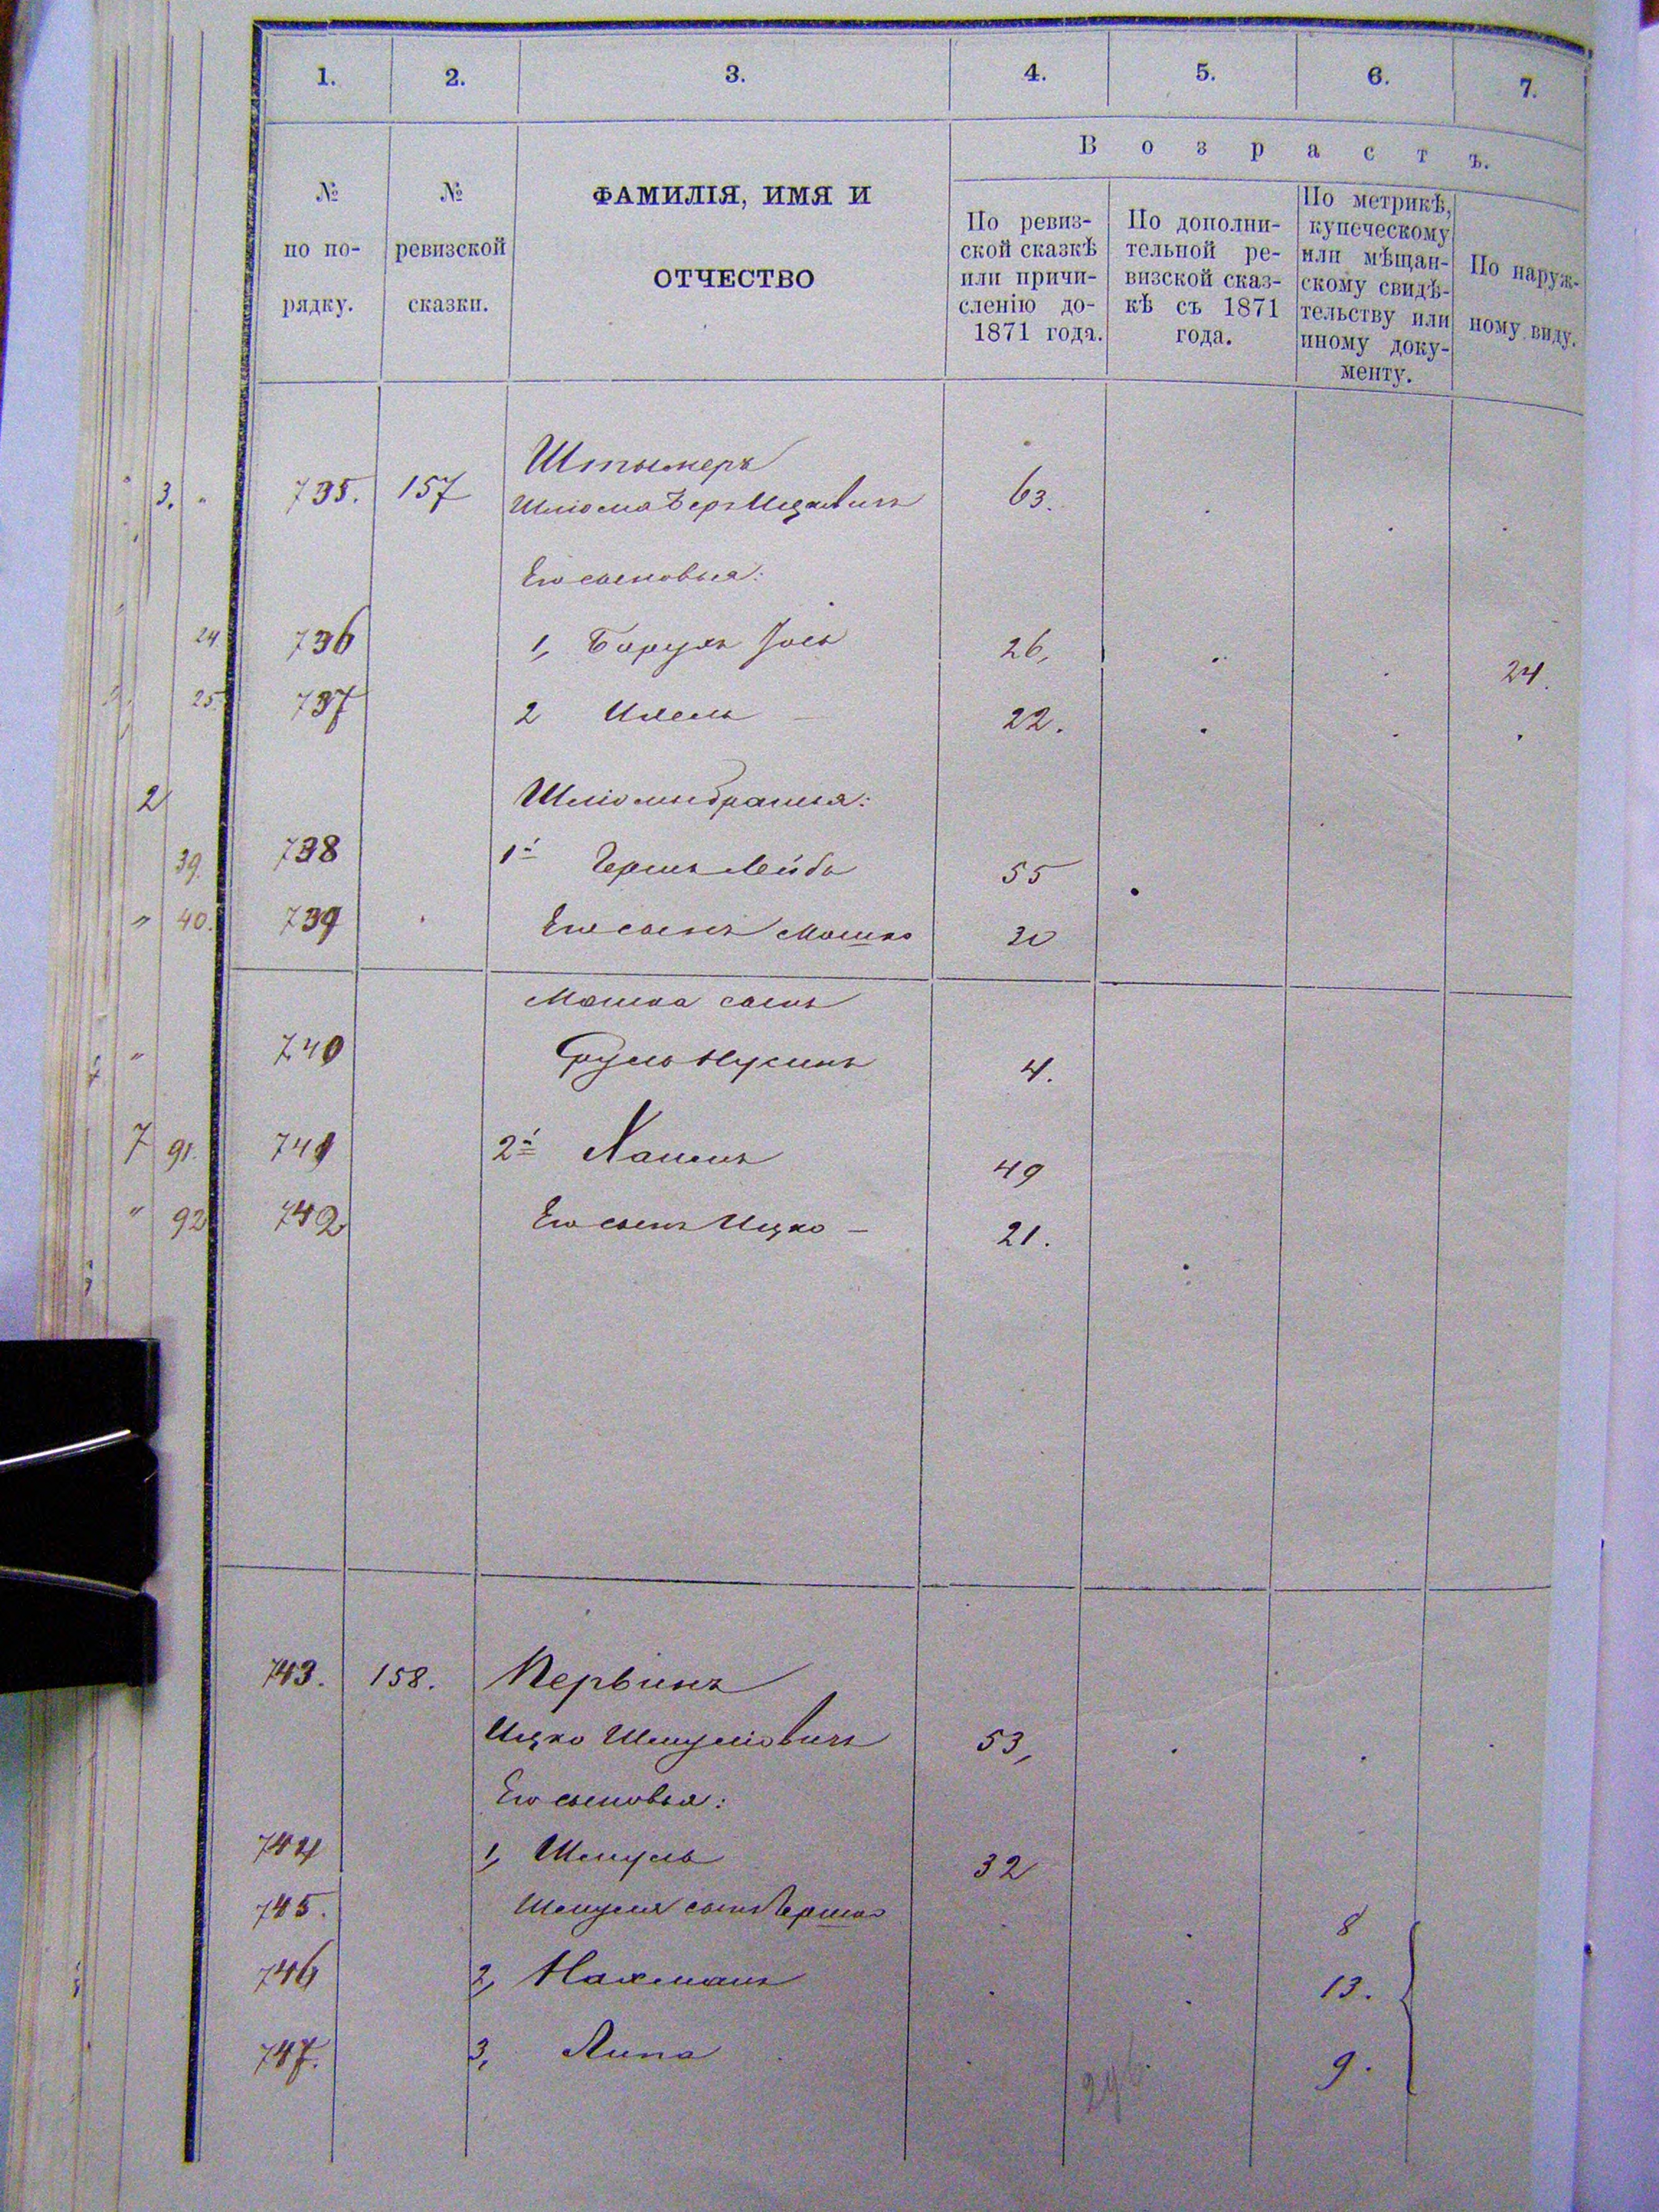 1. 2. 3. 4. 5. 6. 7.
В о з р а с т ъ.
№ по по-рядку.
№ ревизской сказки.
ФАМИЛІЯ, ИМЯ И
ОТЧЕСТВО
По ревиз-
ской сказкѣ
или причи-
сленію до-
1871 года.
По дополни-
тельной ре-
визской сказ-
кѣ съ 1871
года.
По метрикѣ,
купеческому
или мѣщан-
скому свидѣ-
тельству или
иному доку-
менту.
По наруж-
ному виду.
3. 735. 157 Штымеръ
Шліома Беръ Ицковичъ 63.
Его сыновья:
24 736 1, Барухъ Іось 26, 24.
25. 737 2 Ихель 22.
2 Шліомы братья:
39. 738 1й Гершъ Лейба 55
" 40. 739 Его сынъ Мошко 30
Мошка сынъ
" 740 Сруль Нусинъ 4.
7 91. 741 2й Хаимъ 49
" 92 742 Его сынъ Ицко — 21.
743. 158. Первинъ
Ицко Шмуліовичъ 53,
Его сыновья:
744 1, Шмуль 32
745. Шмуля сынъ Гершко 8
746 2, Нахманъ 13.
747. 3, Липа 9.